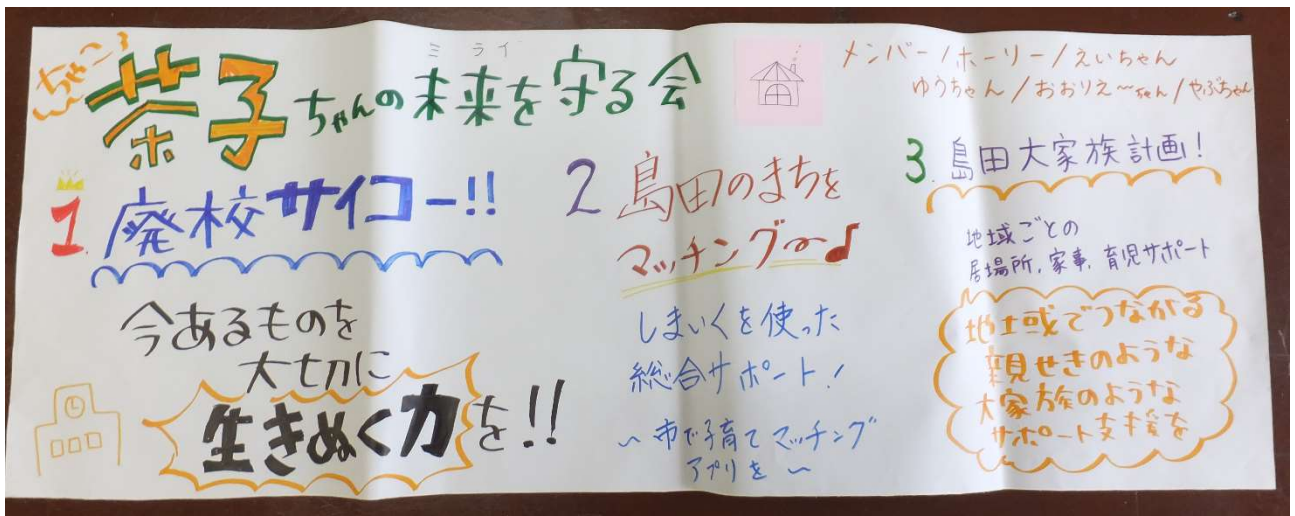 ちゃこ
茶子ちゃんの未来を守る会
ミライ
メンバー/ホーリー/えいちゃん
ゆうちゃん/おおりえ〜ちゃん/やぶちゃん
1. 廃校サイコー!!
今あるものを
大切に
生きぬく力を!!
2 島田のまちを
マッチング〜♪
しまいくを使った
総合サポート!
〜市で子育てマッチング
アプリを〜
3. 島田大家族計画!
地域ごとの
居場所,家事,育児サポート
地域でつながる
親せきのような
大家族のような
サポート支援を